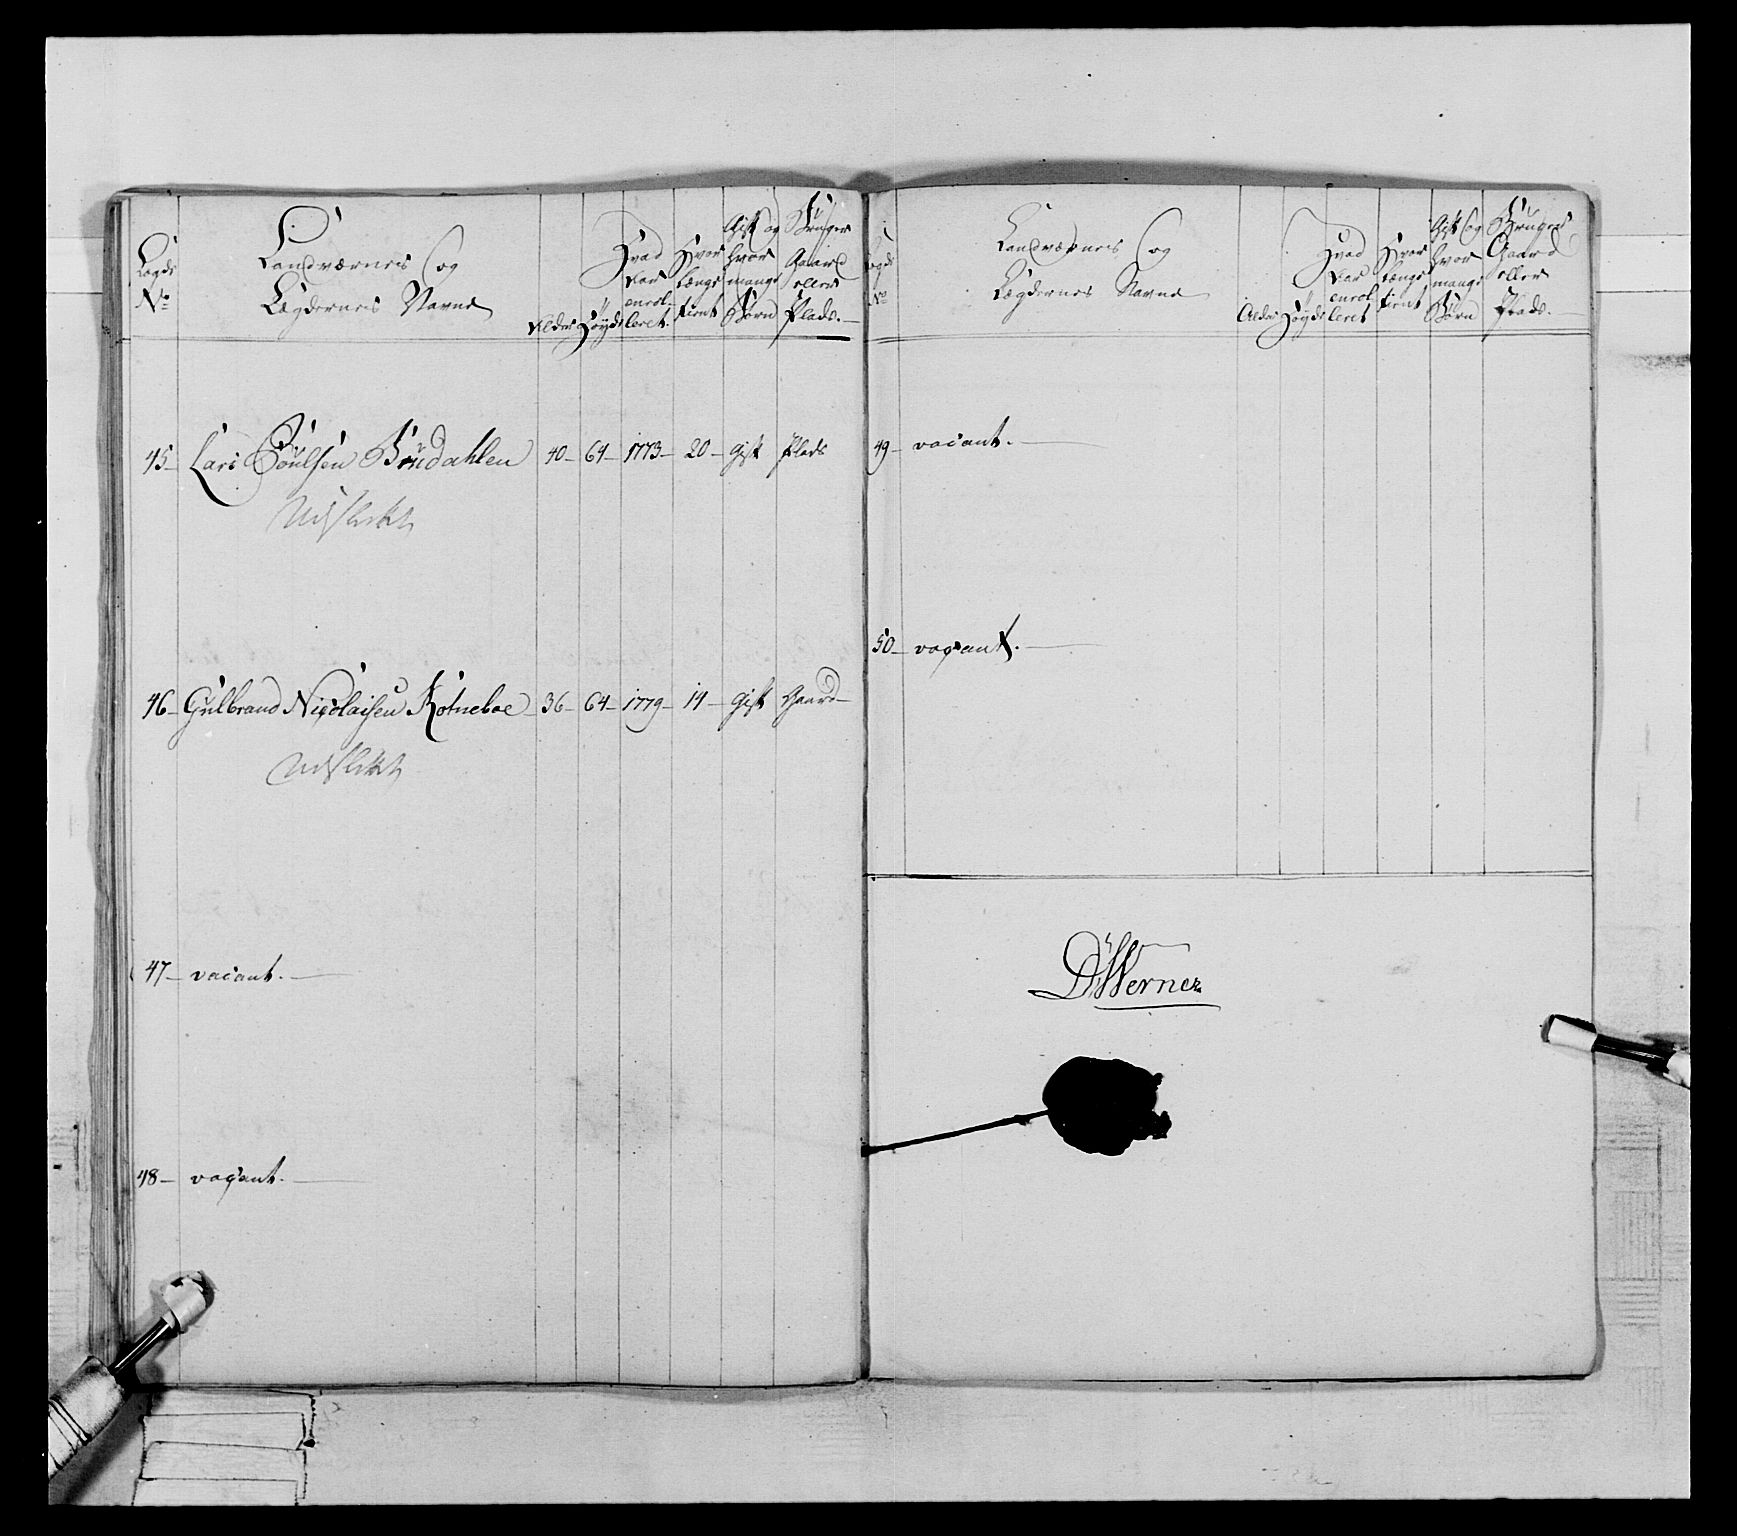 Lægds No
Landværnes og
Lægdernes Navne
Alder
Høyde
Hvad Aar enrolleret.
Hvor længe tient
Gift og hvor mange Børn
Bruger Gaard eller Plads.
45 Lars Poulsen Brudahlen 40 64 1773 20 Gift Plads
Udslekt
46 Gulbrand Nicolaisen Kotneboe 36 64 1779 14 Gift Gaard
Udslekt
47 vacant.
48 vacant.
Lægds No
Landværnes og
Lægdernes Navne
Alder
Høyde
Hvad Aar enrolleret
Hvor længe tient
Gift og hvor mange Børn
Bruger Gaard eller Plads.
49 vacant.
50 vacant.
D Werner